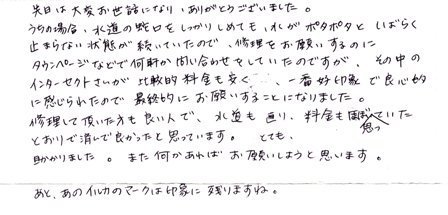 先日は大変お世話になり、ありがとうございました。
うちの場合、水道の蛇口をしっかりしめても、水がポタポタと いばらく
止まらない状態が続いていたので、修理をお願いするのに
タウンページなどで何軒か問い合わせをしていたのですが、その中の
インターセクトさんが比較的料金も安く、一番好印象で良心的
に感じられたので最終的にお願いすることになりました。
修理して頂いた方も良い人で、水道も直り、料金もほぼ思っていた
とおりで済んで良かったと思っています。とても、
助かりました。また何かあればお願いしようと思います。
あと、あのイルカのマークは印象に残りますね。